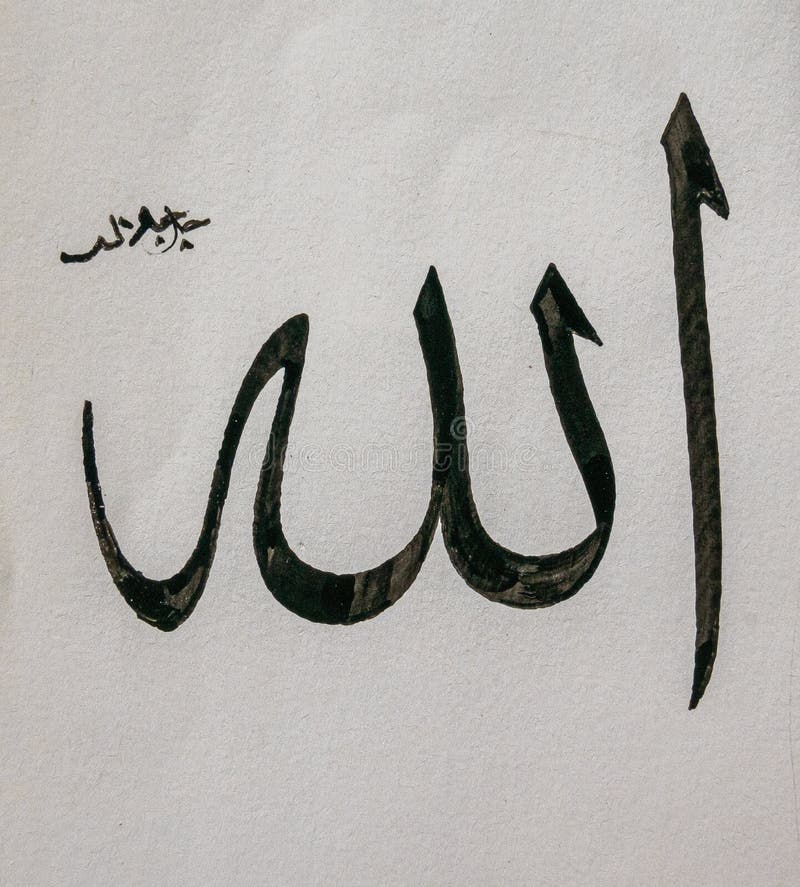 الله
جل جلاله
dreamstime